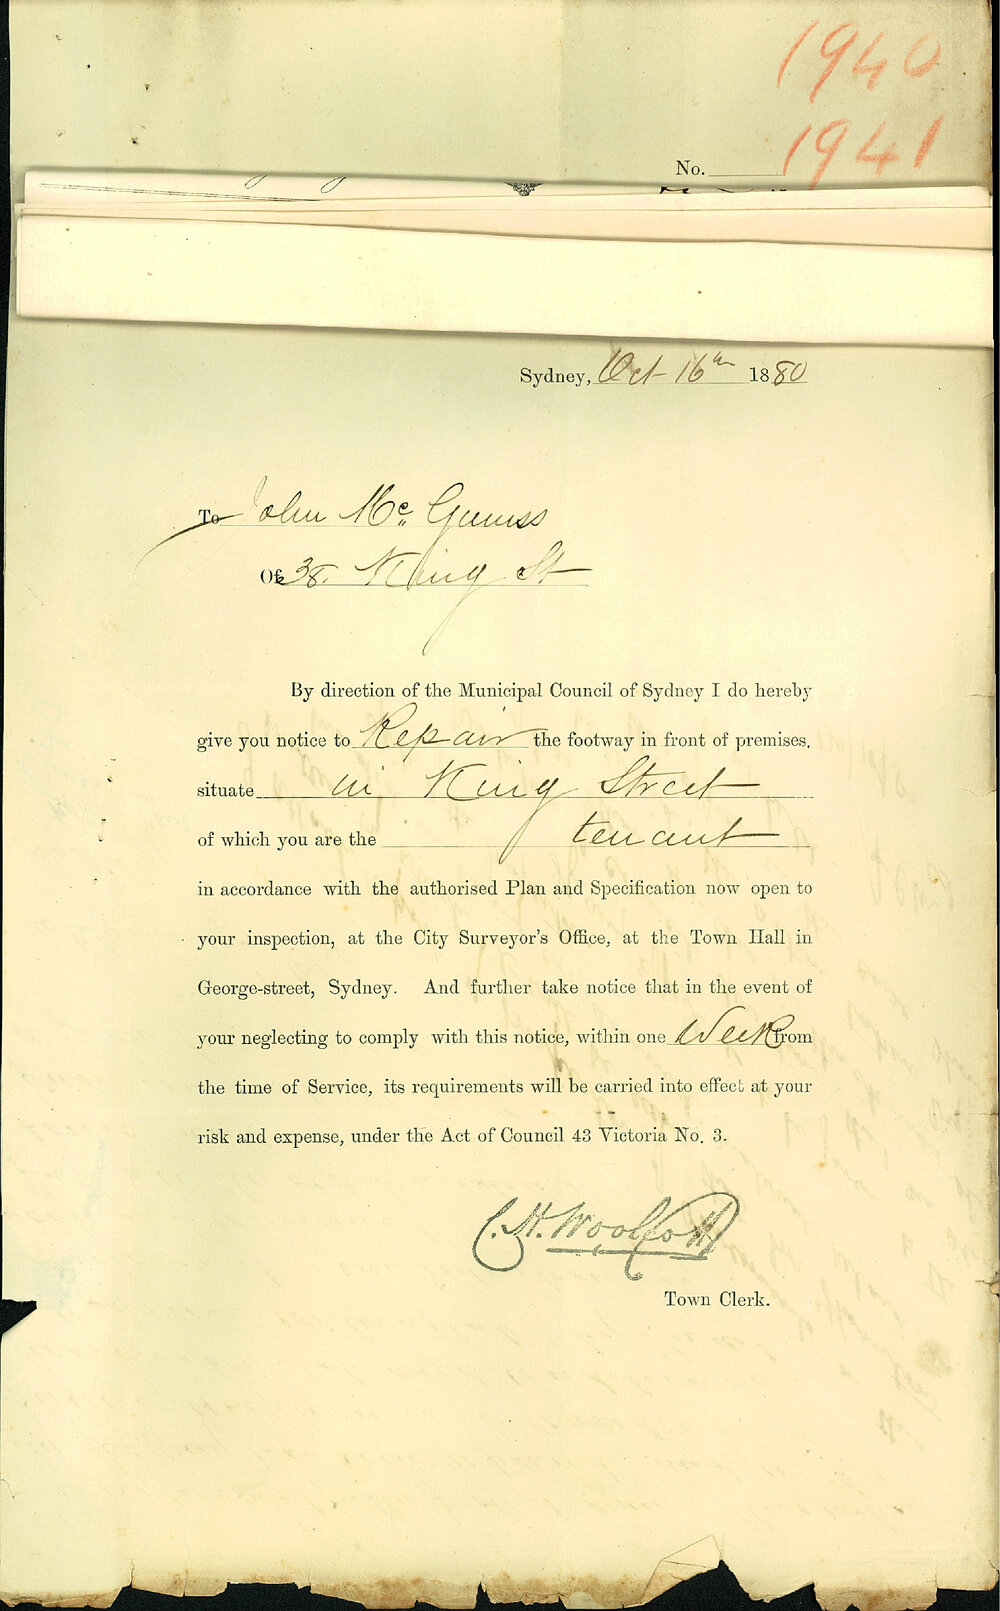 1940
1941
No.
Sydney, Oct 16th 1880
To John Mc. Guiness
Of 38. King St
By direction of the Municipal Council of Sydney I do hereby
give you notice to Repair the footway in front of premises,
situate in King Street
of which you are the tenant
in accordance with the authorised Plan and Specification now open to
your inspection, at the City Surveyor's Office, at the Town Hall in
George-street, Sydney. And further take notice that in the event of
your neglecting to comply with this notice, within one Week from
the time of Service, its requirements will be carried into effect at your
risk and expense, under the Act of Council 43 Victoria No. 3.
C. H. Woolcott
Town Clerk.